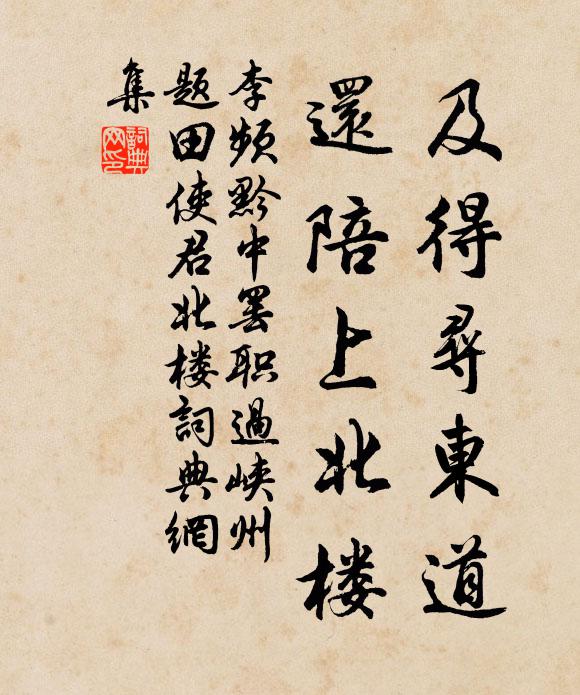 及得尋東道
還陪上北楼
李频黔中罢职過峡州
题田使君北楼詞典網
集
詞典
网印